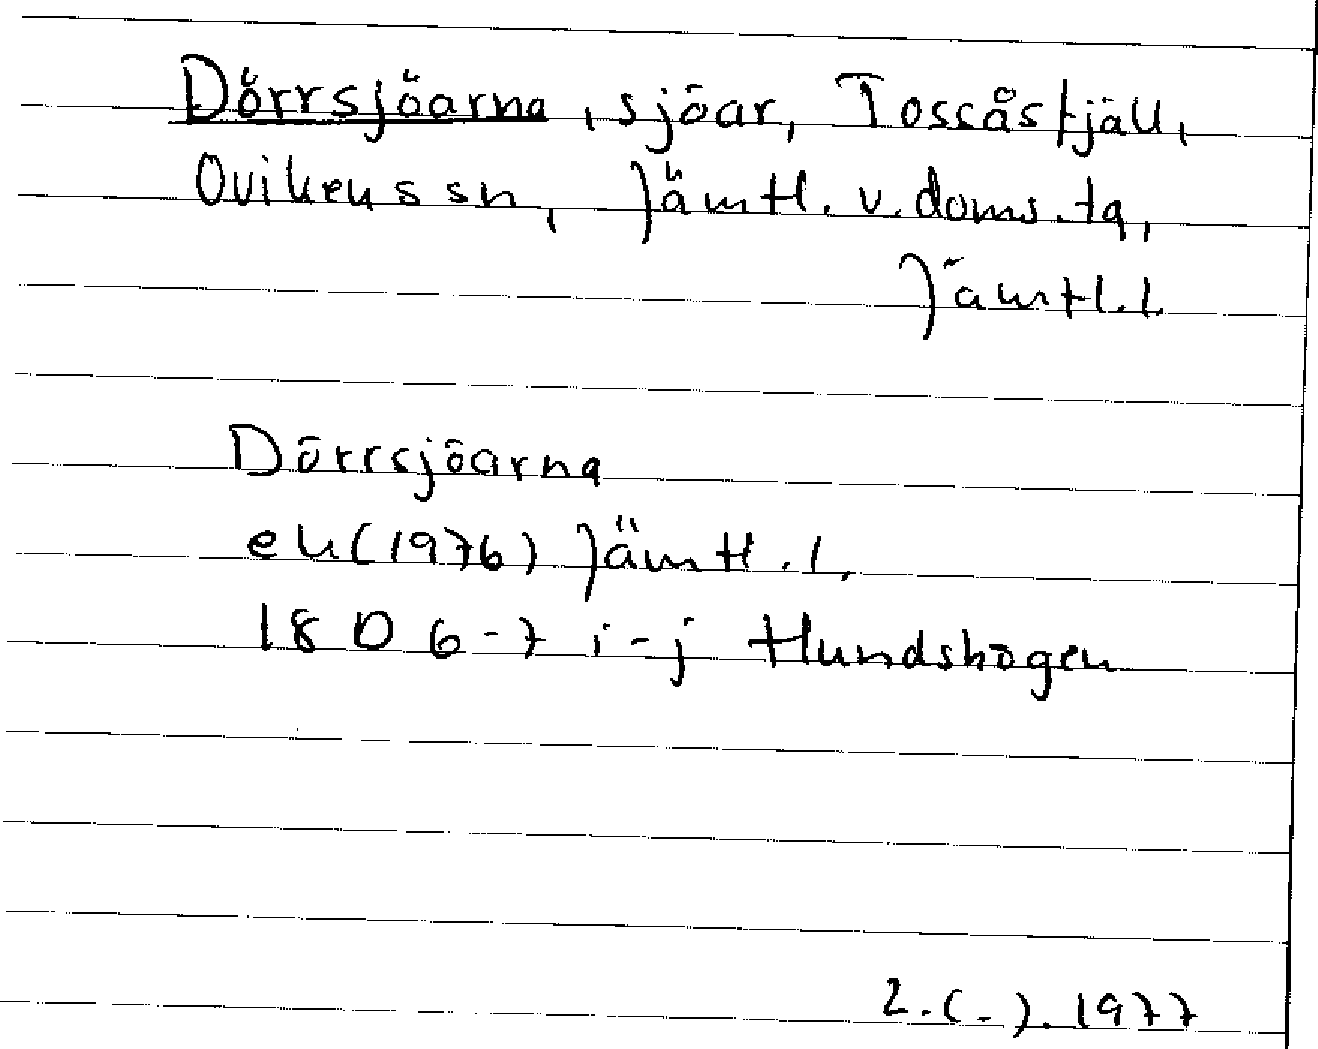 Dörrsjöarna, sjöar, Tossåsfjäll,
Ovikens sn, Jämtl. v. doms.tg,
Jämtl.l.
Dörrsjöarna
ek(1976) Jämtl.l.
18 D 6-7 i-j Hundshögen
2.(-).1977